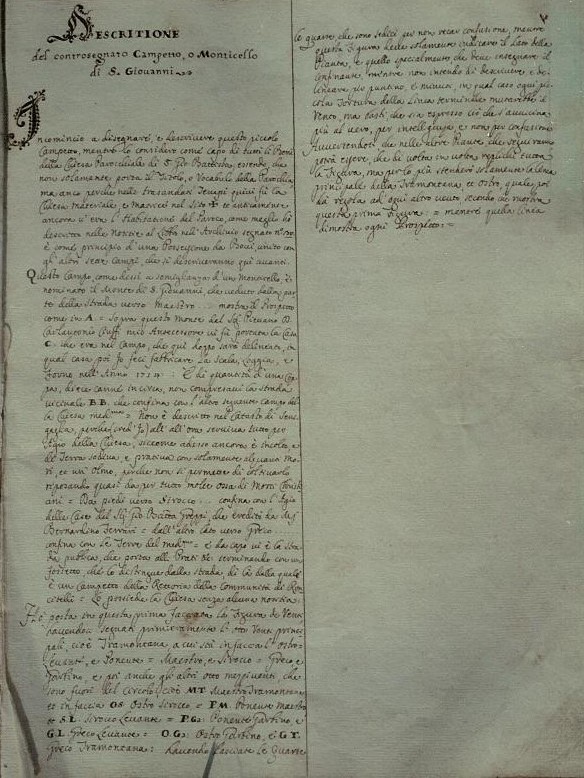 Descritione
del controsegnato Campetto, o Monticello
di S. Giovanni
Incomincio a disegnare, e descrivere questo piccolo
Campetto, mentre lo considero come capo di tutti li Beni
della Chiesa Parocchiale di S. Gio Battista, essendo, che
non solamente porta il Titolo, o Vocabolo della Parochia
ma anco perche nelli trasandati Tempi quivi fu la
Chiesa materiale, e
ancora v'era l'Habitatione del Paroco, come meglio hò
descritto nelle Notitie al
è come principio d'una Possessione da Bovi, unito con
gli altri Campi, che si descriveranno qui avanti.
Questo Campo, come dissi a somiglianza d'un Monticello, è
nominato il Monte di S. Giovanni, che veduto dalla par
te della Strada verso Maestro mostra il Prospetto
come in A = Sopra questo Monte dal Sigr Pievano D.
mio Antecessore vi fù portata la Casa
C. che era nel Campo, che quì doppo sarà delineato, in
qual casa poi Io feci fabbricare la Scala, Loggia, e
Forno nell'Anno E di quantità d'una Cop-
pa, dieci canne in circa, non compresavi la strada
vicinale B.B. che confina con l'altro seguente campo del
la Chiesa Non è descritto nel Catasto di
perche (cred'Io) all'all'ora serviva tutto per
della Chiesa, siccome adesso ancora è incolto, e
di Terra sodiva, e prativa con solamente alquanti Mo-
ri, et un'Olmo, perche non si permette di coltivarlo
riposando quasi da per tutto molte Ossa di Morti Christi-
ani = Da piedi verso Sirocco confina con
delle Case del Sigr Gio Batta che eredità da
Bernardino Ferrari = dall'altro lato verso Greco
confina con le Terre del = e da capo vi è la Stra-
da publica, che porta alli Prati terminando con un
fossetto, che lo distingue dalla strada, di là dalla quale
è un Campetto della Rettoria della Communità di
Lo possiede la Chiesa senza alcuna notitia:
Hò posta in questa prima facciata la Figura de Venti
havendoci segnati primieramente li otto Venti princi-
pali, cioè Tramontana, a cui stà in faccia l'Ostro =
Levante, e Ponente = Maestro, e Sirocco = Greco, e
Garbino, e poi anche gli altri otto che
sono fuori del Circolo cioè M.T. Maestro Tramontana
et in faccia O.S. Ostro Sirocco = P.M. Ponente Maestro
et S.L. Sirocco Levante = P.G. Ponente Garbino, e
G.L. Greco Levante = O.G. Ostro Garbino, e G.T.
Greco Tramontana: havendo lasciate le Quarte
le Quarte che sono sedici per non recar confusione, mentre
questa Figura deve solamente indicare il Lato della
Pianta, e quello specialmente che deve insegnare il
confinante, mentre non intendo di descrivere e de-
lineare per puntino, e minuti, in qual caso ogni pic-
cola tortura della Linea terminale mutarebbe il
Vento, ma basti, che sia espresso ciò che s'avvicina
più al vero, per intelligenza, e non per confusione
Avvertendosi che nelle altre Piante che seguiranno
potrà essere, che di volta in volta replichi tutta
la Figura, ma per lo più stenderò solamente la Linea
principale della Tramontana, et Ostro, quale poi
dà regola ad ogni altro vento secondo che mostra
questa prima Figura: = mentre quella Linea
dimostra ogni